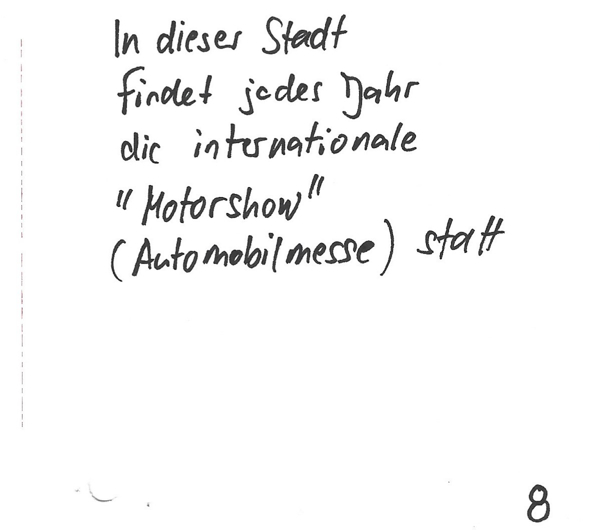 In dieser Stadt
findet jedes Jahr
die internationale
"Motorshow"
(Automobilmesse) statt
8